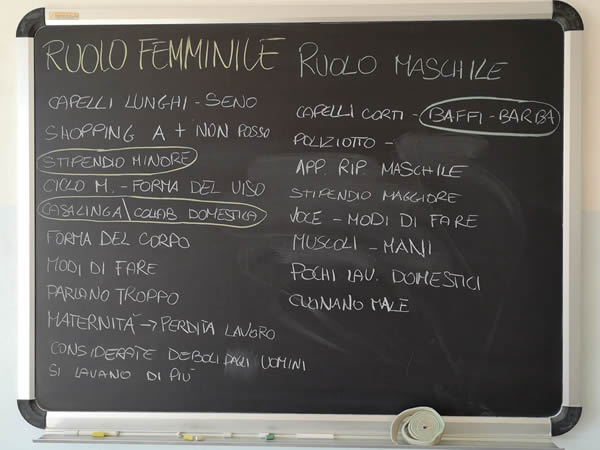 RUOLO FEMMINILE
CAPELLI LUNGHI - SENO
SHOPPING A + NON POSSO
STIPENDIO MINORE
CICLO M. - FORMA DEL VISO
CASALINGA \ COLLAB DOMESTICA
FORMA DEL CORPO
MODI DI FARE
PARLANO TROPPO
MATERNITÀ → PERDITA LAVORO
CONSIDERATE DEBOLI DAGLI UOMINI
SI LAVANO DI PIÙ
RUOLO MASCHILE
CAPELLI CORTI - BAFFI - BARBA
POLIZIOTTO -
APP. RIP. MASCHILE
STIPENDIO MAGGIORE
VOCE - MODI DI FARE
MUSCOLI - MANI
POCHI LAV. DOMESTICI
CUCINANO MALE